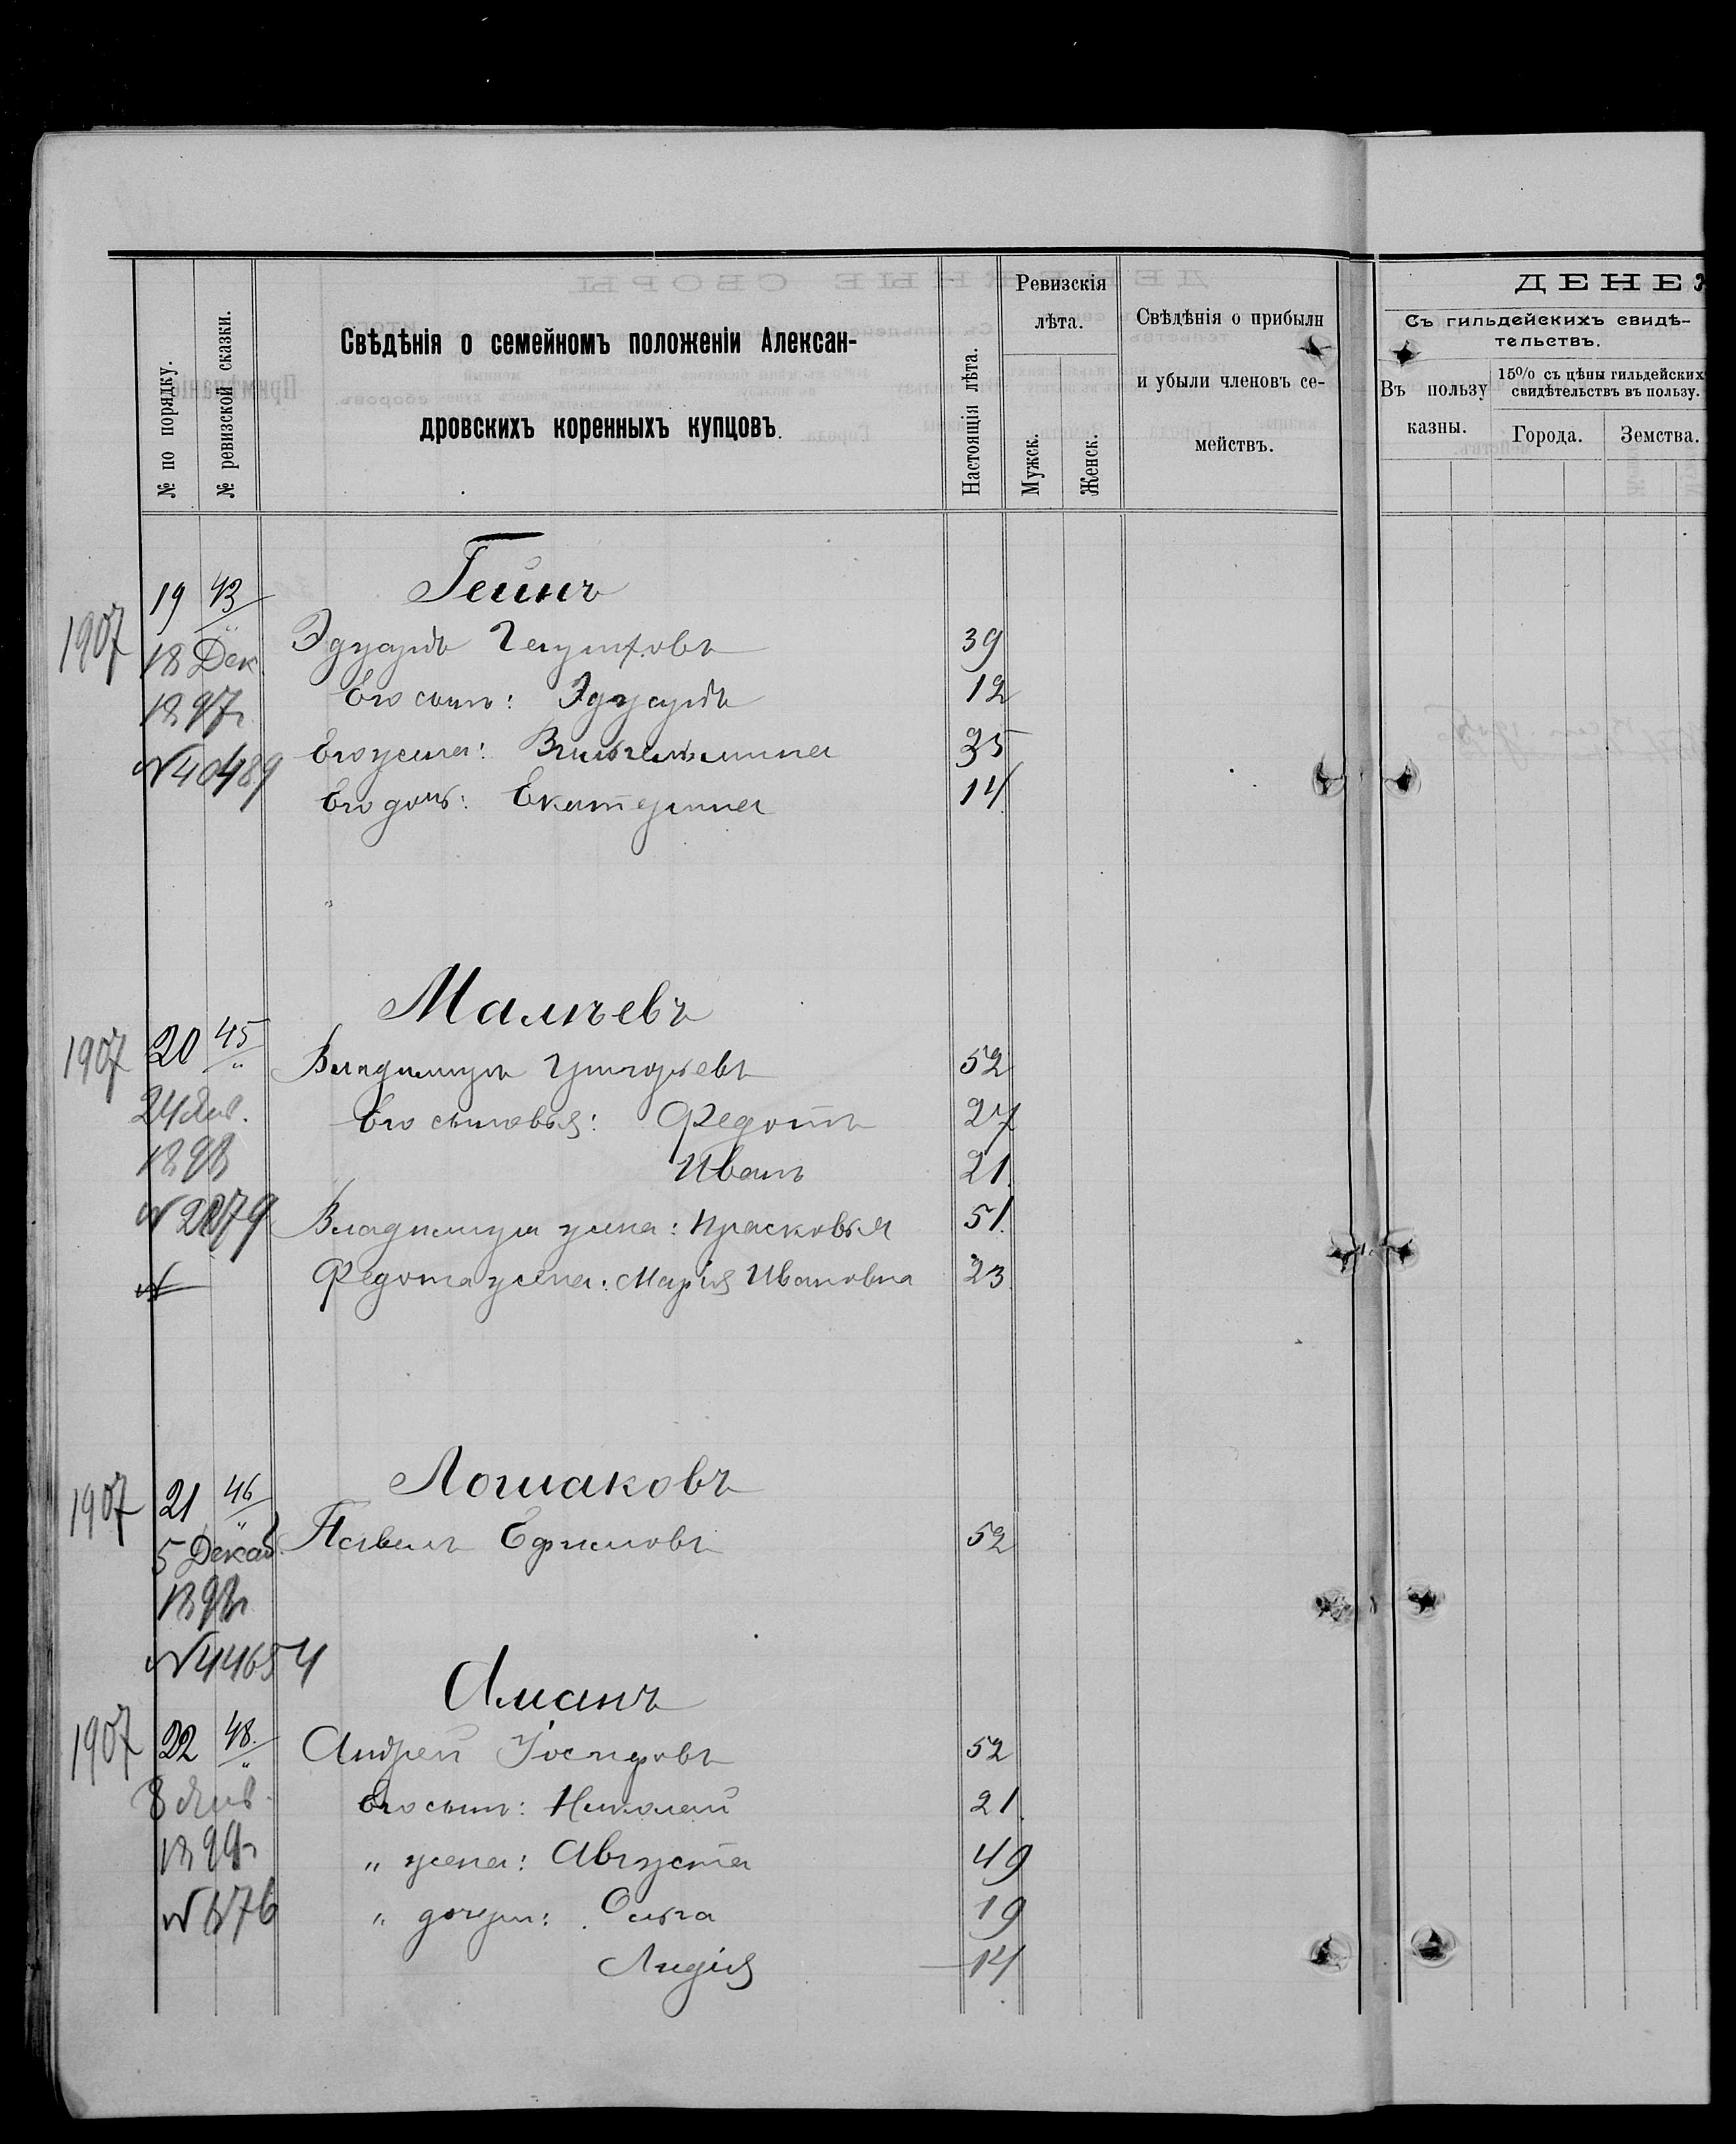 № по порядку.
№ ревизской сказки.
Свѣдѣнія о семейномъ положеніи Алексан-
дровскихъ коренныхъ купцовъ.
Настоящія лѣта.
Ревизскія
лѣта.
Мужск.
Женск.
Свѣдѣнія о прибыли
и убыли членовъ се-
мействъ.
ДЕНЕЖ
Съ гильдейскихъ свидѣ-
тельствъ.
Въ пользу
казны.
15% съ цѣны гильдейских
свидѣтельствъ въ пользу.
Города.
Земства.
Гейнъ
1907 19 43
Эдуардъ 39
18 Дек.
Его сынъ: Эдуардъ 12
1897г.
Его жена: Вильгельмина 35
№40489
Его дочь: Екатерина 14
Малѣевъ
1907 20 45
Владимиръ Григорьевъ 52
24 Янв.
Его сыновья: Федотъ 27
1898
Иванъ 21
Владимира жена: Прасковья 51.
№2279
Федота жена: Марія Ивановна 23
№
Лошаковъ
1907 21 46
Павелъ Ефимовъ 52
5 Декаб.
1898г.
№44654
Аманъ
1907 22 48.
Андрей Іосифовъ 52
8 Янв.
Его сынъ: Николай 21
1899г.
„ жена: Августа 49
№676
„ дочери: Ольга 19
Лидія 14